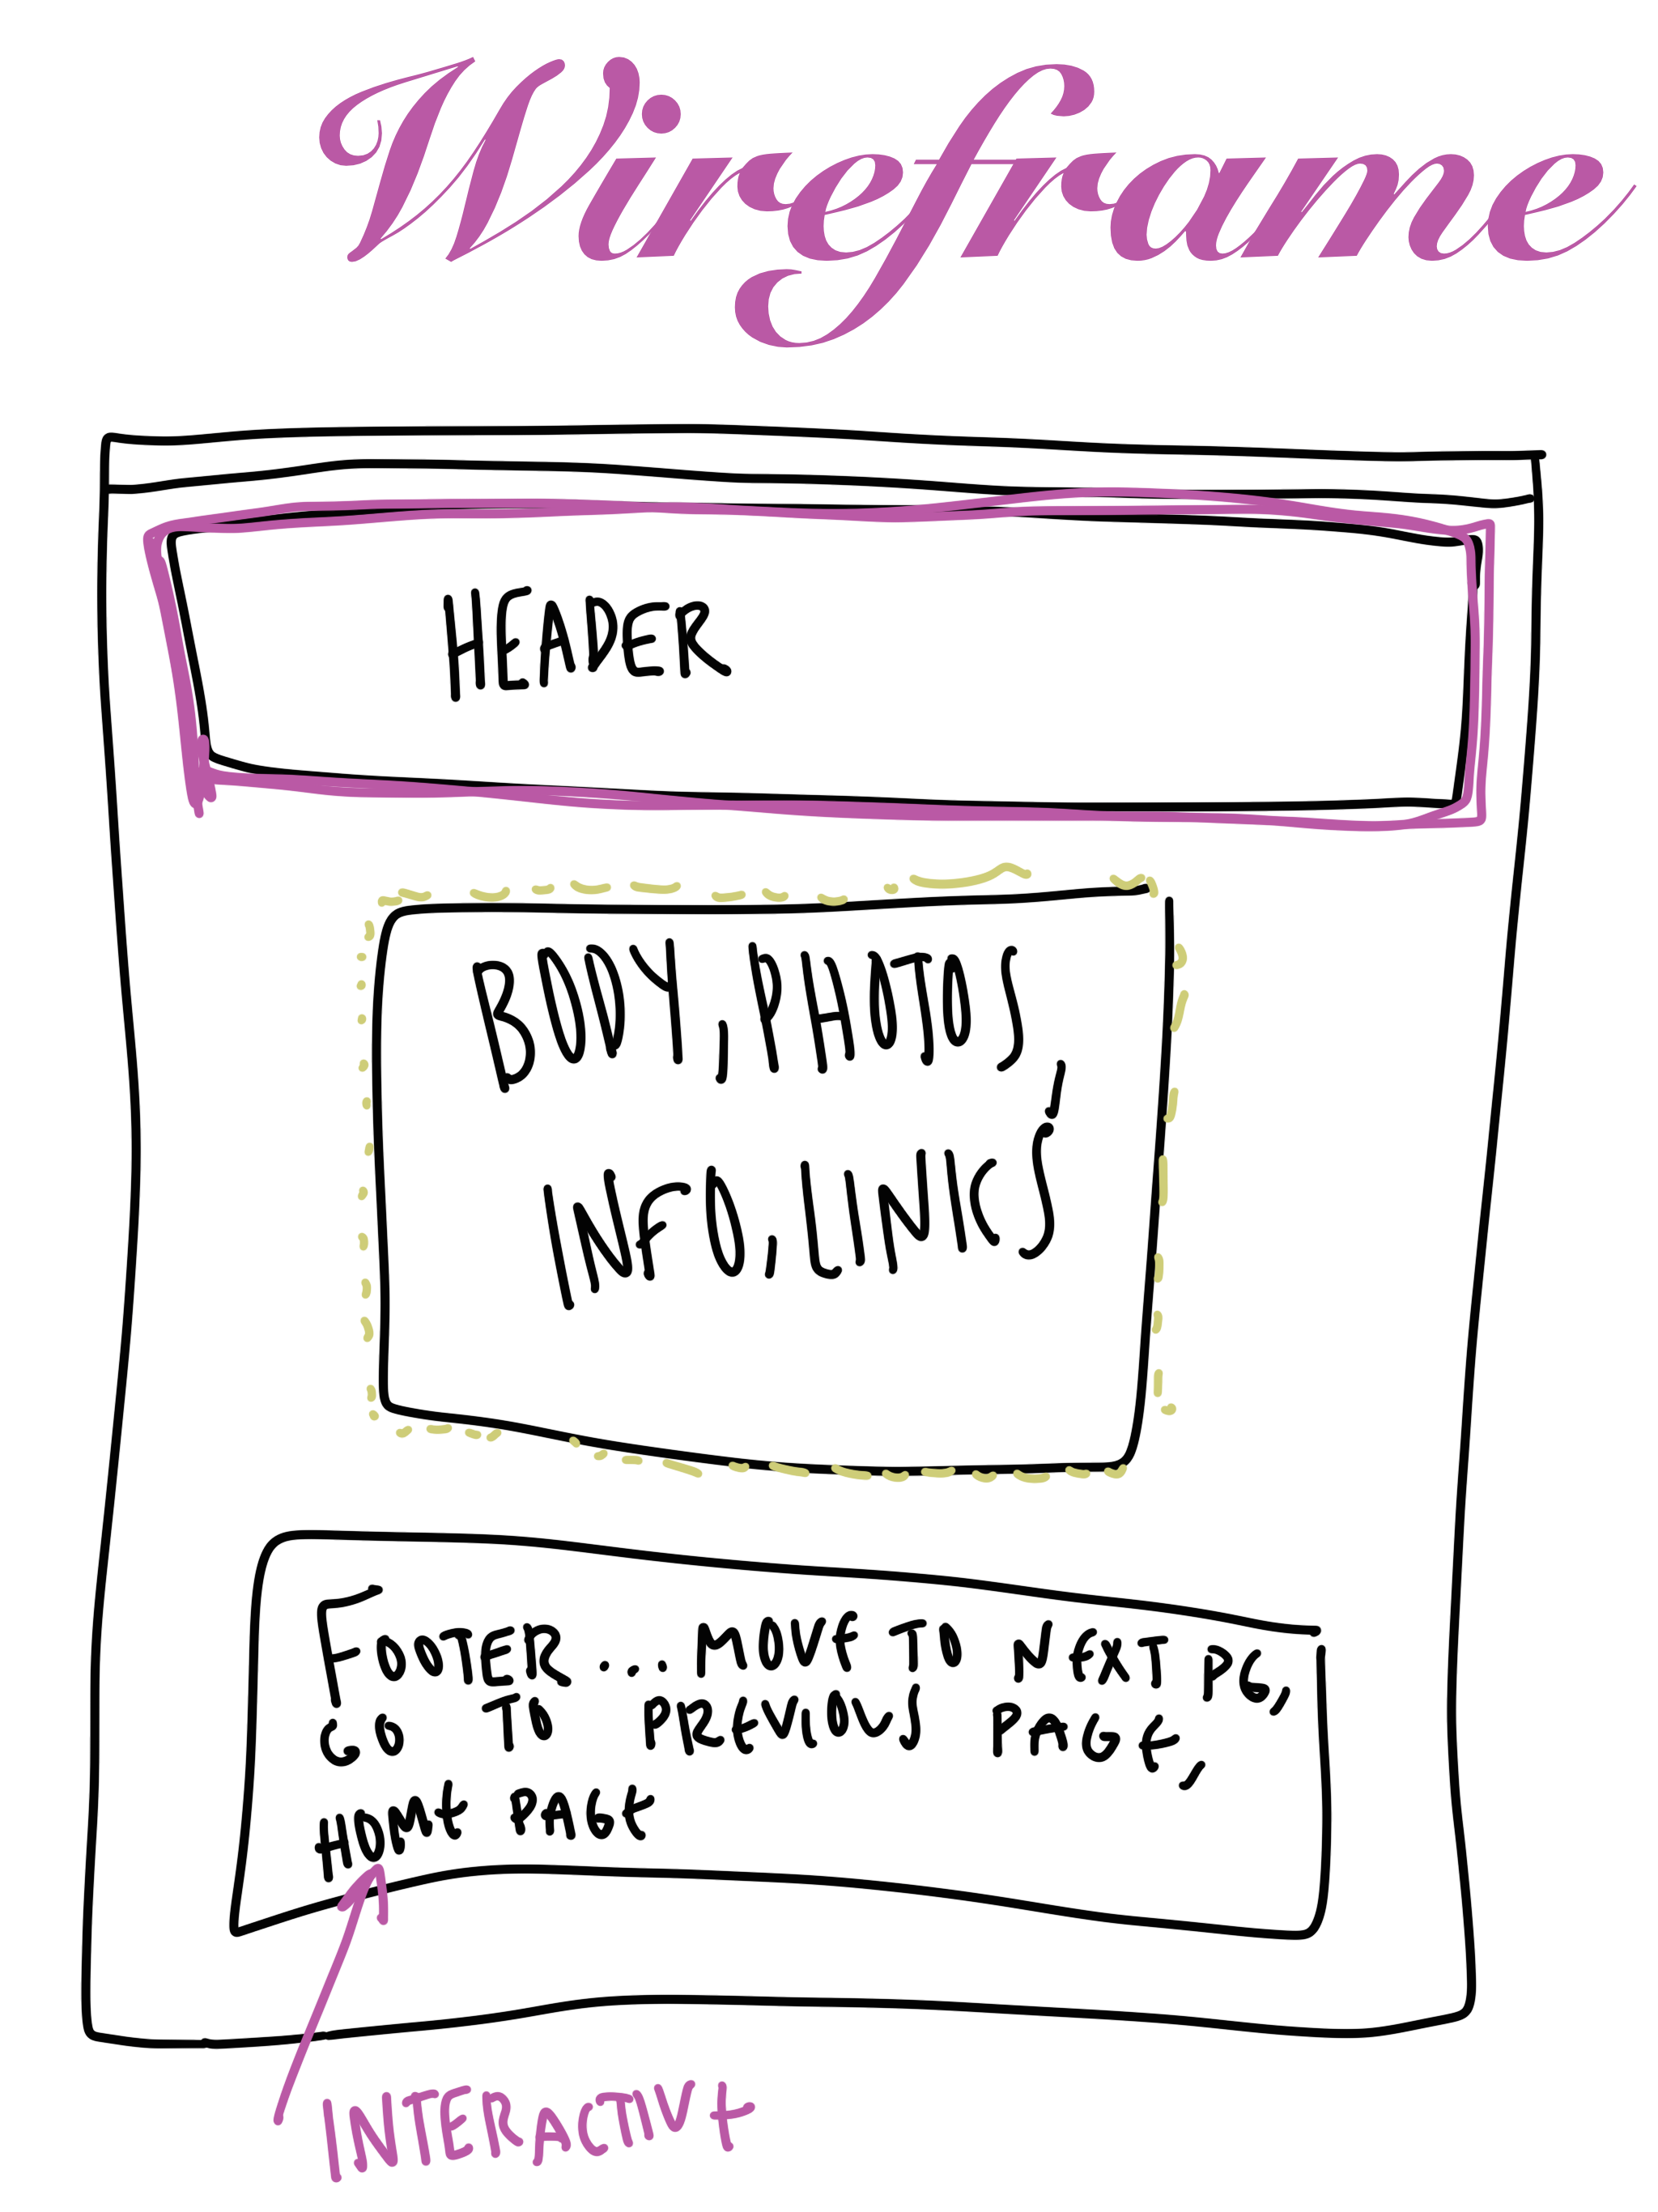 Wireframe
HEADER
BODY, PHOTOS,
INFO, LINKS
FOOTER ... MOVE TO NEXT PG,
GO TO PREVIOUS PAGE,
HOME PAGE
INTERACTIVE